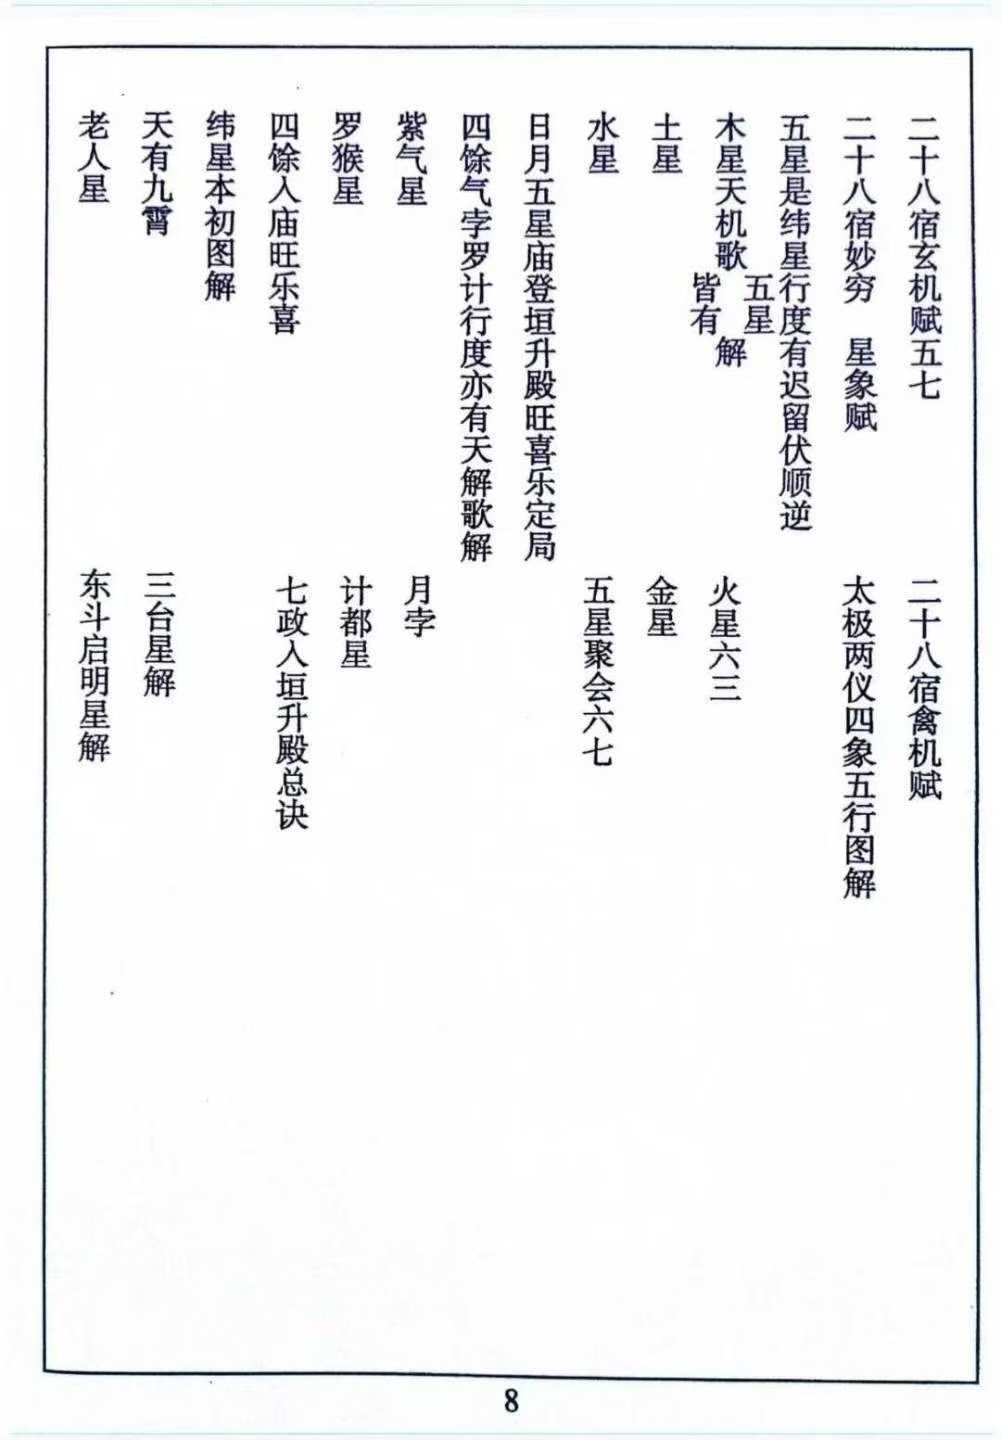 二十八宿玄机赋五七
二十八宿禽机赋
二十八宿妙穷 星象赋
太极两仪四象五行图解
五星是纬星行度有迟留伏顺逆
木星天机歌 五星皆有 解
火星六三
土星
金星
水星
五星聚会六七
日月五星庙登垣升殿旺喜乐定局
四馀气孛罗计行度亦有天解歌解
紫气星
月孛
罗猴星
计都星
四馀入庙旺乐喜
七政入垣升殿总诀
纬星本初图解
天有九霄
三台星解
老人星
东斗启明星解
8